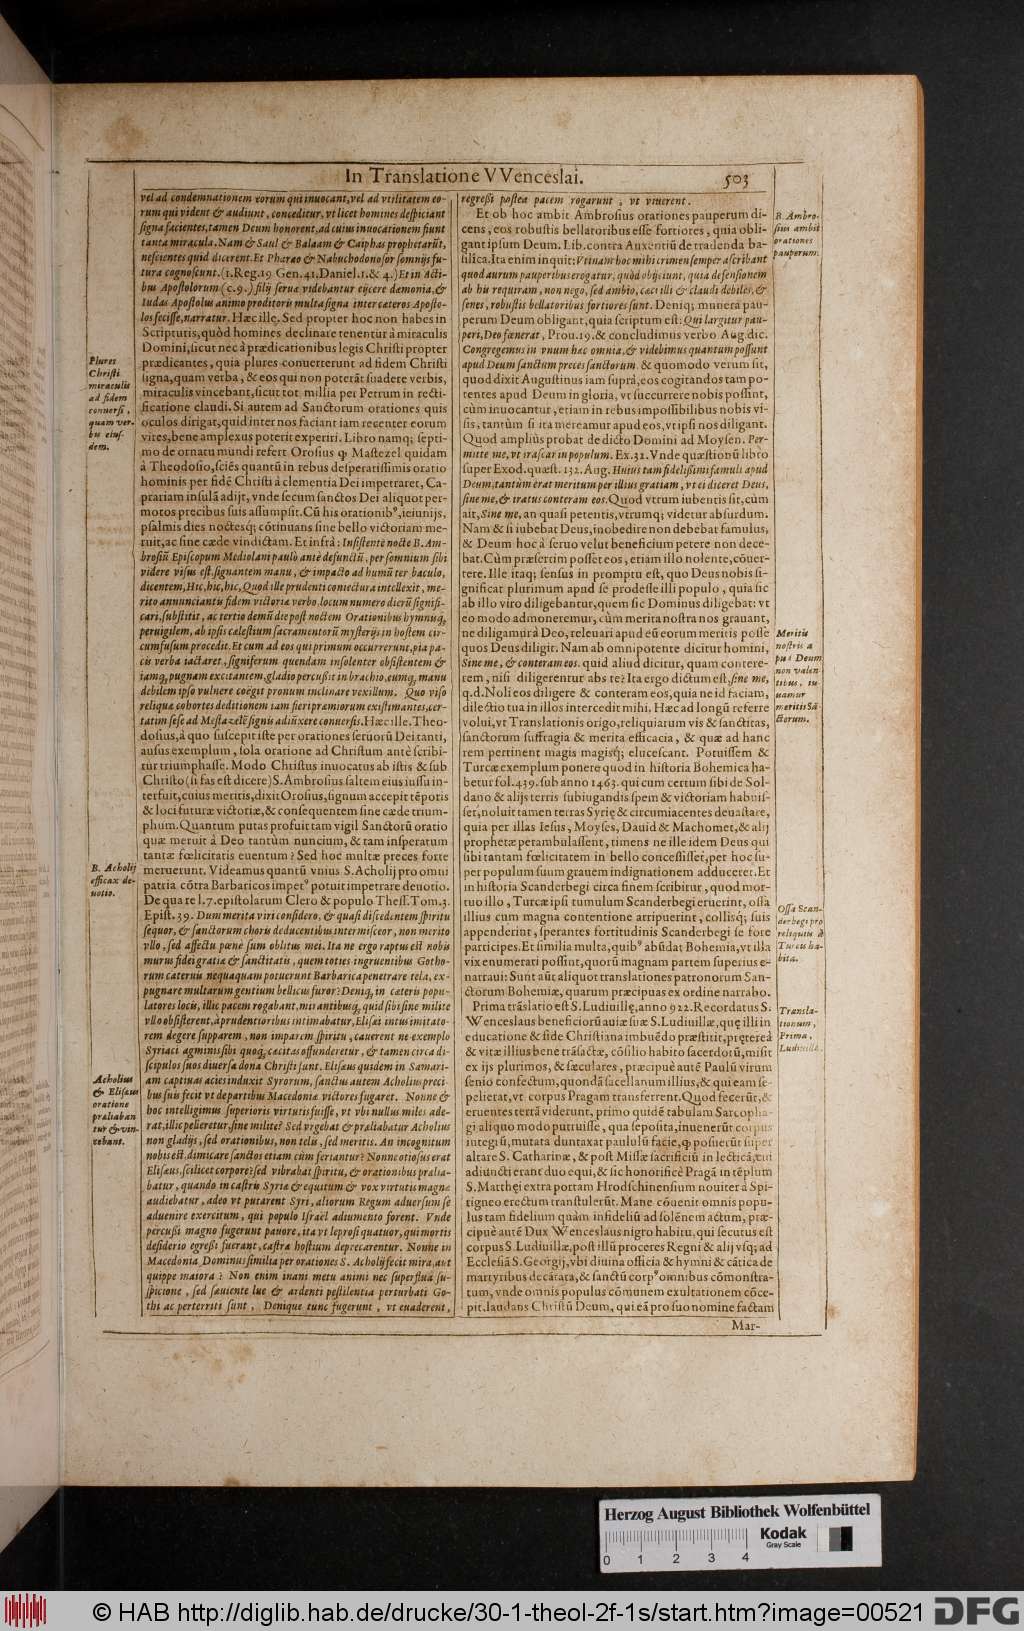 In Translatione VVenceslai.
503
vel ad condemnationem eorum qui inuocant, vel ad vtilitatem eo-
rum qui vident & audiunt, conceditur, vt licet homines despiciant
signa facientes, tamen Deum honorent, ad cuius inuocationem fiunt
tanta miracula. Nam & Saul & Balaam & Caiphas prophetarūt,
nescientes quid dicerent. Et Pharao & Nabuchodonosor somnijs fu-
tura cognoscunt. (1. Reg. 19 Gen. 41. Daniel. 1. & 4.) Et in Acti-
bus Apostolorum (c. 9.) filij seruæ videbantur eijcere dæmonia, &
Iudas Apostolus animo proditoris multa signa inter cæteros Aposto-
los fecisse, narratur. Hæc ille. Sed propter hoc non habes in
Scripturis, quòd homines declinare tenentur à miraculis
Domini, sicut nec à prædicationibus legis Christi propter
prædicantes, quia plures conuerterunt ad fidem Christi
signa, quam verba, & eos qui non poterāt suadere verbis,
miraculis vincebant, sicut tot millia per Petrum in recti-
ficatione claudi. Si autem ad Sanctorum orationes quis
oculos dirigat, quid inter nos faciant iam recenter eorum
vires, bene amplexus poterit experiri. Libro namq; septi-
mo de ornatu mundi refert Orosius ꝙ Mastezel quidam
à Theodosio, sciēs quantū in rebus desperatissimis oratio
hominis per fidē Christi à clementia Dei impetraret, Ca-
prariam insulā adijt, vnde secum sanctos Dei aliquot per-
motos precibus suis assumpsit. Cū his orationibꝰ, ieiunijs,
psalmis dies noctesq; cōtinuans sine bello victoriam me-
ruit, ac sine cæde vindictam. Et infrà: Insistente nocte B. Am-
brosiū Episcopum Mediolani paulò antè defunctū, per somnium sibi
videre visus est, signantem manu, & impacto ad humū ter baculo,
dicentem, Hic, hic, hic, Quod ille prudenti coniectura intellexit, me-
rito annunciantis fidem victoriæ verbo, locum numero dierū signifi-
cari, substitit, ac tertio demū die post noctem Orationibus hymnisq,
peruigilem, ab ipsis cælestium sacramentorū mysterijs in hostem cir-
cumfusum procedit. Et cum ad eos qui primum occurrerunt, pia pa-
cis verba iactaret, signiferum quendam insolenter obsistentem &
iamq, pugnam excitantem, gladio percußit in brachio, eumq, manu
debilem ipso vulnere coëgit pronum inclinare vexillum. Quo viso
reliquæ cohortes deditionem iam fieri præmiorum existimantes, cer-
tatim sese ad Mestazelē signis adiūxere conuersis. Hæc ille. Theo-
dosius, à quo suscepit iste per orationes seruorū Dei tanti,
ausus exemplum, sola oratione ad Christum antè scribi-
tur triumphasse. Modo Christus inuocatus ab istis & sub
Christo (si fas est dicere) S. Ambrosius saltem eius iussu in-
terfuit, cuius meritis, dixit Orosius, signum accepit tēporis
& loci futuræ victoriæ, & consequentem sine cæde trium-
phum. Quantum putas profuit tam vigil Sanctorū oratio
quæ meruit à Deo tantùm nuncium, & tam insperatum
tantæ fœlicitatis euentum? Sed hoc multæ preces forte
meruerunt. Videamus quantū vnius S. Acholij pro omni
patria cōtra Barbaricos impetꝰ potuit impetrare deuotio.
De qua re l. 7. epistolarum Clero & populo Thess. Tom. 3.
Epist. 39. Dum merita viri considero, & quasi discedentem spiritu
sequor, & sanctorum choris deducentibus intermisceor, non merito
vllo, sed affectu pœnè sum oblitus mei. Ita ne ergo raptus est nobis
murus fidei gratiæ & sanctitatis, quem toties ingruentibus Gotho-
rum cateruis nequaquam potuerunt Barbarica penetrare tela, ex-
pugnare multarum gentium bellicus furor? Deniq, in cæteris popu-
latores locis, illic pacem rogabant, mirantibusq, quid sibi sine milite
vllo obsisterent, à prudentioribus intimabatur, Elisæi intus imitato-
rem degere supparem, non imparem spiritu, cauerent ne exemplo
Syriaci agminis sibi quoq, cæcitas offunderetur, & tamen circa di-
scipulos suos diuersa dona Christi sunt. Elisæus quidem in Samari-
am captiuas acies induxit Syrorum, sanctus autem Acholius preci-
bus suis fecit vt de partibus Macedoniæ victores fugaret. Nonne &
hoc intelligimus superioris virtutis fuisse, vt vbi nullus miles ade-
rat, illic pelleretur, sine milite? Sed vrgebat & præliabatur Acholius
non gladijs, sed orationibus, non telis, sed meritis. An incognitum
nobis est, dimicare sanctos etiam cùm feriantur? Nonne otiosus erat
Elisæus, scilicet corpore? sed vibrabat spiritu, & orationibus prælia-
batur, quando in castris Syriæ & equitum & vox virtutis magnæ
audiebatur, adeo vt putarent Syri, aliorum Regum aduersùm se
aduenire exercitum, qui populo Israël adiumento forent. Vnde
percußi magno fugerunt pauore, ita vt leprosi quatuor, qui mortis
desiderio egreßi fuerant, castra hostium deprecarentur. Nonne in
Macedonia Dominus similia per orationes S. Acholij fecit mira, aut
quippe maiora? Non enim inani metu animi nec superflua su-
spicione, sed sæuiente lue & ardenti pestilentia perturbati Go-
thi ac perterriti sunt, Denique tunc fugerunt, vt euaderent,
Plures
Christi
miraculis
ad fidem
conuersi,
quam ver-
bis eius-
dem.
B. Acholij
efficax de-
uotio.
Acholius
& Elisæus
oratione
præliaban
tur & vin-
cebant.
regreßi postea pacem rogarunt, vt viuerent.
Et ob hoc ambit Ambrosius orationes pauperum di-
cens, eos robustis bellatoribus esse fortiores, quia obli-
gant ipsum Deum. Lib. contra Auxentiū de tradenda ba-
silica. Ita enim inquit: Vtinam hoc mihi crimen semper ascribant
quod aurum pauperibus erogatur, quòd obijciunt, quia defensionem
ab his requiram, non nego, sed ambio, cæci illi & claudi debiles, &
senes, robustis bellatoribus fortiores sunt. Deniq; munera pau-
perum Deum obligant, quia scriptum est: Qui largitur pau-
peri, Deo fœnerat, Prou. 19. & concludimus verbo Aug. dic.
Congregemus in vnum hæc omnia, & videbimus quantum possunt
apud Deum sanctum preces sanctorum. & quomodo verum sit,
quod dixit Augustinus iam suprà, eos cogitandos tam po-
tentes apud Deum in gloria, vt succurrere nobis possint,
cùm inuocantur, etiam in rebus impossibilibus nobis vi-
sis, tantùm si ita mereamur apud eos, vt ipsi nos diligant.
Quod ampliùs probat de dicto Domini ad Moysen. Per-
mitte me, vt irascar in populum. Ex. 32. Vnde quæstionū libro
super Exod. quæst. 132. Aug. Huius tam fidelissimi famuli apud
Deum, tantùm erat meritum per illius gratiam, vt ei diceret Deus,
sine me, & iratus conteram eos. Quod vtrum iubentis sit, cùm
ait, Sine me, an quasi petentis, vtrumq; videtur absurdum.
Nam & si iubebat Deus, inobedire non debebat famulus,
& Deum hoc à seruo velut beneficium petere non dece-
bat. Cùm præsertim posset eos, etiam illo nolente, cōuer-
tere. Ille itaq; sensus in promptu est, quo Deus nobis si-
gnificat plurimum apud se prodesse illi populo, quia sic
ab illo viro diligebantur, quem sic Dominus diligebat: vt
eo modo admoneremur, cùm merita nostra nos grauant,
ne diligamur à Deo, releuari apud eū eorum meritis posse
quos Deus diligit. Nam ab omnipotente dicitur homini,
Sine me, & conteram eos. quid aliud dicitur, quam contere-
rem, nisi diligerentur abs te? Ita ergo dictum est, sine me,
q.d. Noli eos diligere & conteram eos, quia ne id faciam,
dilectio tua in illos intercedit mihi. Hæc ad longū referre
volui, vt Translationis origo, reliquiarum vis & sanctitas,
sanctorum suffragia & merita efficacia, & quæ ad hanc
rem pertinent magis magisq; elucescant. Potuissem &
Turcæ exemplum ponere quod in historia Bohemica ha-
betur fol. 439. sub anno 1463. qui cum certum sibi de Sol-
dano & alijs terris subiugandis spem & victoriam habuis-
set, noluit tamen terras Syriæ & circumiacentes deuastare,
quia per illas Iesus, Moyses, Dauid & Machomet, & alij
prophetæ perambulassent, timens ne ille idem Deus qui
sibi tantam fœlicitatem in bello concessisset, per hoc su-
per populum suum grauem indignationem adduceret. Et
in historia Scanderbegi circa finem scribitur, quod mor-
tuo illo, Turcæ ipsi tumulum Scanderbegi eruerint, ossa
illius cum magna contentione arripuerint, collisq; suis
appenderint, sperantes fortitudinis Scanderbegi se fore
participes. Et similia multa, quibꝰ abūdat Bohemia, vt illa
vix enumerari possint, quorū magnam partem superius e-
narraui: Sunt aūt aliquot translationes patronorum San-
ctorum Bohemiæ, quarum præcipuas ex ordine narrabo.
Prima trāslatio est S. Ludiuillę, anno 922. Recordatus S.
Wenceslaus beneficiorū auiæ suæ S. Ludiuillæ, quę illi in
educatione & fide Christiana imbuēdo præstitit, pręterea
& vitæ illius bene trāsactæ, cōsilio habito sacerdotū, misit
ex ijs plurimos, & sæculares, præcipuè autē Paulū virum
senio confectum, quondā sacellanum illius, & qui eam se-
pelierat, vt corpus Pragam transferrent. Quod fecerūt, &
eruentes terrā viderunt, primo quidē tabulam Sarcopha-
gi aliquo modo putruisse, qua seposita, inuenerūt corpus
integrū, mutata duntaxat paululū facie, ꝙ posuerūt super
altare S. Catharinæ, & post Missæ sacrificiū in lecticā, cui
adiuncti erant duo equi, & sic honorificè Pragā in tēplum
S. Matthęi extra portam Hrodschinensium nouiter à Spi-
tigneo erectum transtulerūt. Mane cōuenit omnis popu-
lus tam fidelium quàm infideliū ad solēnem actum, præ-
cipuè autē Dux Wenceslaus nigro habitu, qui secutus est
corpus S. Ludiuillæ, post illū proceres Regni & alij vsq; ad
Ecclesiā S. Georgij, vbi diuina officia & hymni & cātica de
martyribus decātata, & sanctū corpꝰ omnibus cōmonstra-
tum, vnde omnis populus cōmunem exultationem cōce-
pit, laudans Christū Deum, qui eā pro suo nomine factam
Mar-
B. Ambro-
sius ambit
orationes
pauperum.
Meritis
nostris a
pud Deum
non valen
tibus, iu-
uamur
meritis Sā-
ctorum.
Ossa Scan-
derbegi pro
reliquiis à
Turcis ha-
bita.
Transla-
tionum,
Prima,
Ludiuillæ.
Herzog August Bibliothek Wolfenbüttel
0 1 2 3 4
Kodak
Gray Scale
© HAB http://diglib.hab.de/drucke/30-1-theol-2f-1s/start.htm?image=00521
DFG